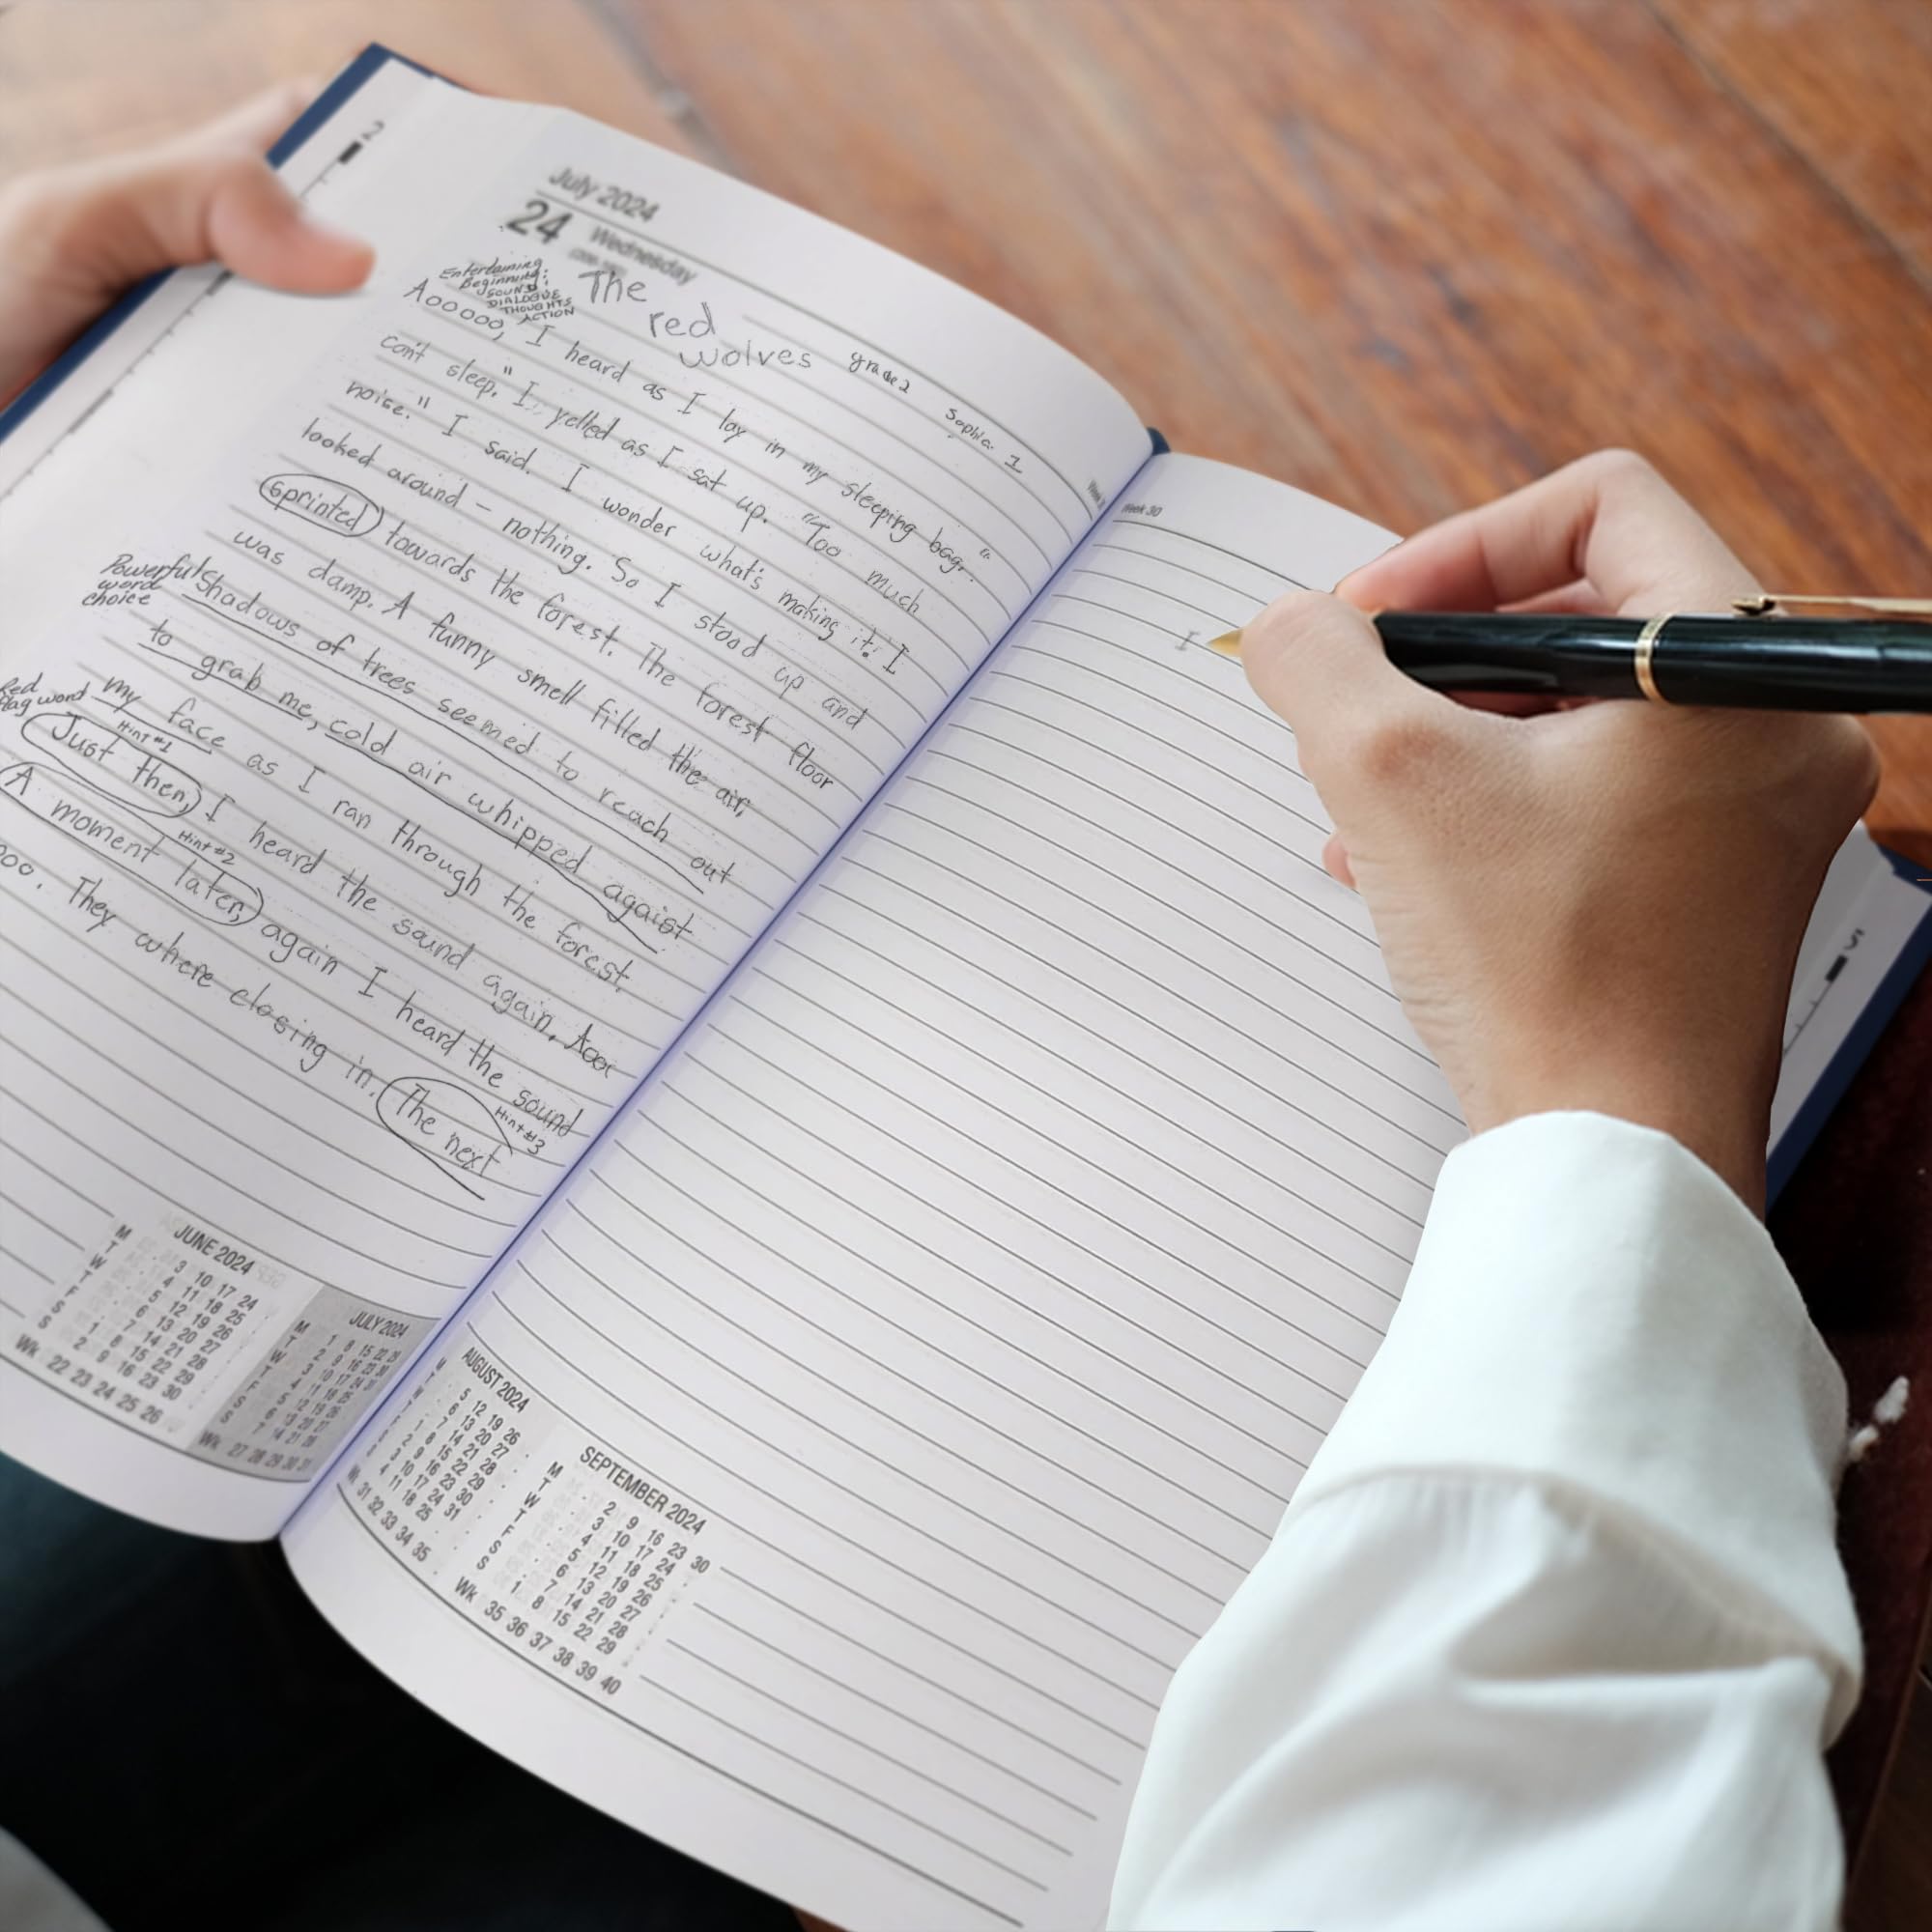 July 2024
24 Wednesday
Entertaining
Beginning:
SOUND
DIALOGUE
THOUGHTS
ACTION
The
red
wolves
grade 2
Sophia
1
Aooooo, I heard as I lay in my sleeping bag. "
can't sleep." I yelled as I sat up. "Too much
noise." I said. I wonder what's making it. I
looked around - nothing. So I stood up and
sprinted towards the forest. The forest floor
was damp. A funny smell filled the air,
Powerful
word
choice
Shadows of trees seemed to reach out
to grab me, cold air whipped agaist
my face as I ran through the forest.
Red
flag word
Hint #1
Just then, I heard the sound again, Aooo
Hint #2
A moment later, again I heard the sound
ooo. They where closing in. The next
Hint #3
JUNE 2024
M 3 10 17 24
T 4 11 18 25
W 5 12 19 26
T 6 13 20 27
F 7 14 21 28
S 1 8 15 22 29
S 2 9 16 23 30
Wk 22 23 24 25 26
JULY 2024
M 1 8 15 22 29
T 2 9 16 23 30
W 3 10 17 24 31
T 4 11 18 25
F 5 12 19 26
S 6 13 20 27
S 7 14 21 28
Wk 27 28 29 30 31
Week 30
I
AUGUST 2024
M 5 12 19 26
T 6 13 20 27
W 7 14 21 28
T 1 8 15 22 29
F 2 9 16 23 30
S 3 10 17 24 31
S 4 11 18 25
Wk 31 32 33 34 35
SEPTEMBER 2024
M 2 9 16 23 30
T 3 10 17 24
W 4 11 18 25
T 5 12 19 26
F 6 13 20 27
S 7 14 21 28
S 1 8 15 22 29
Wk 35 36 37 38 39 40